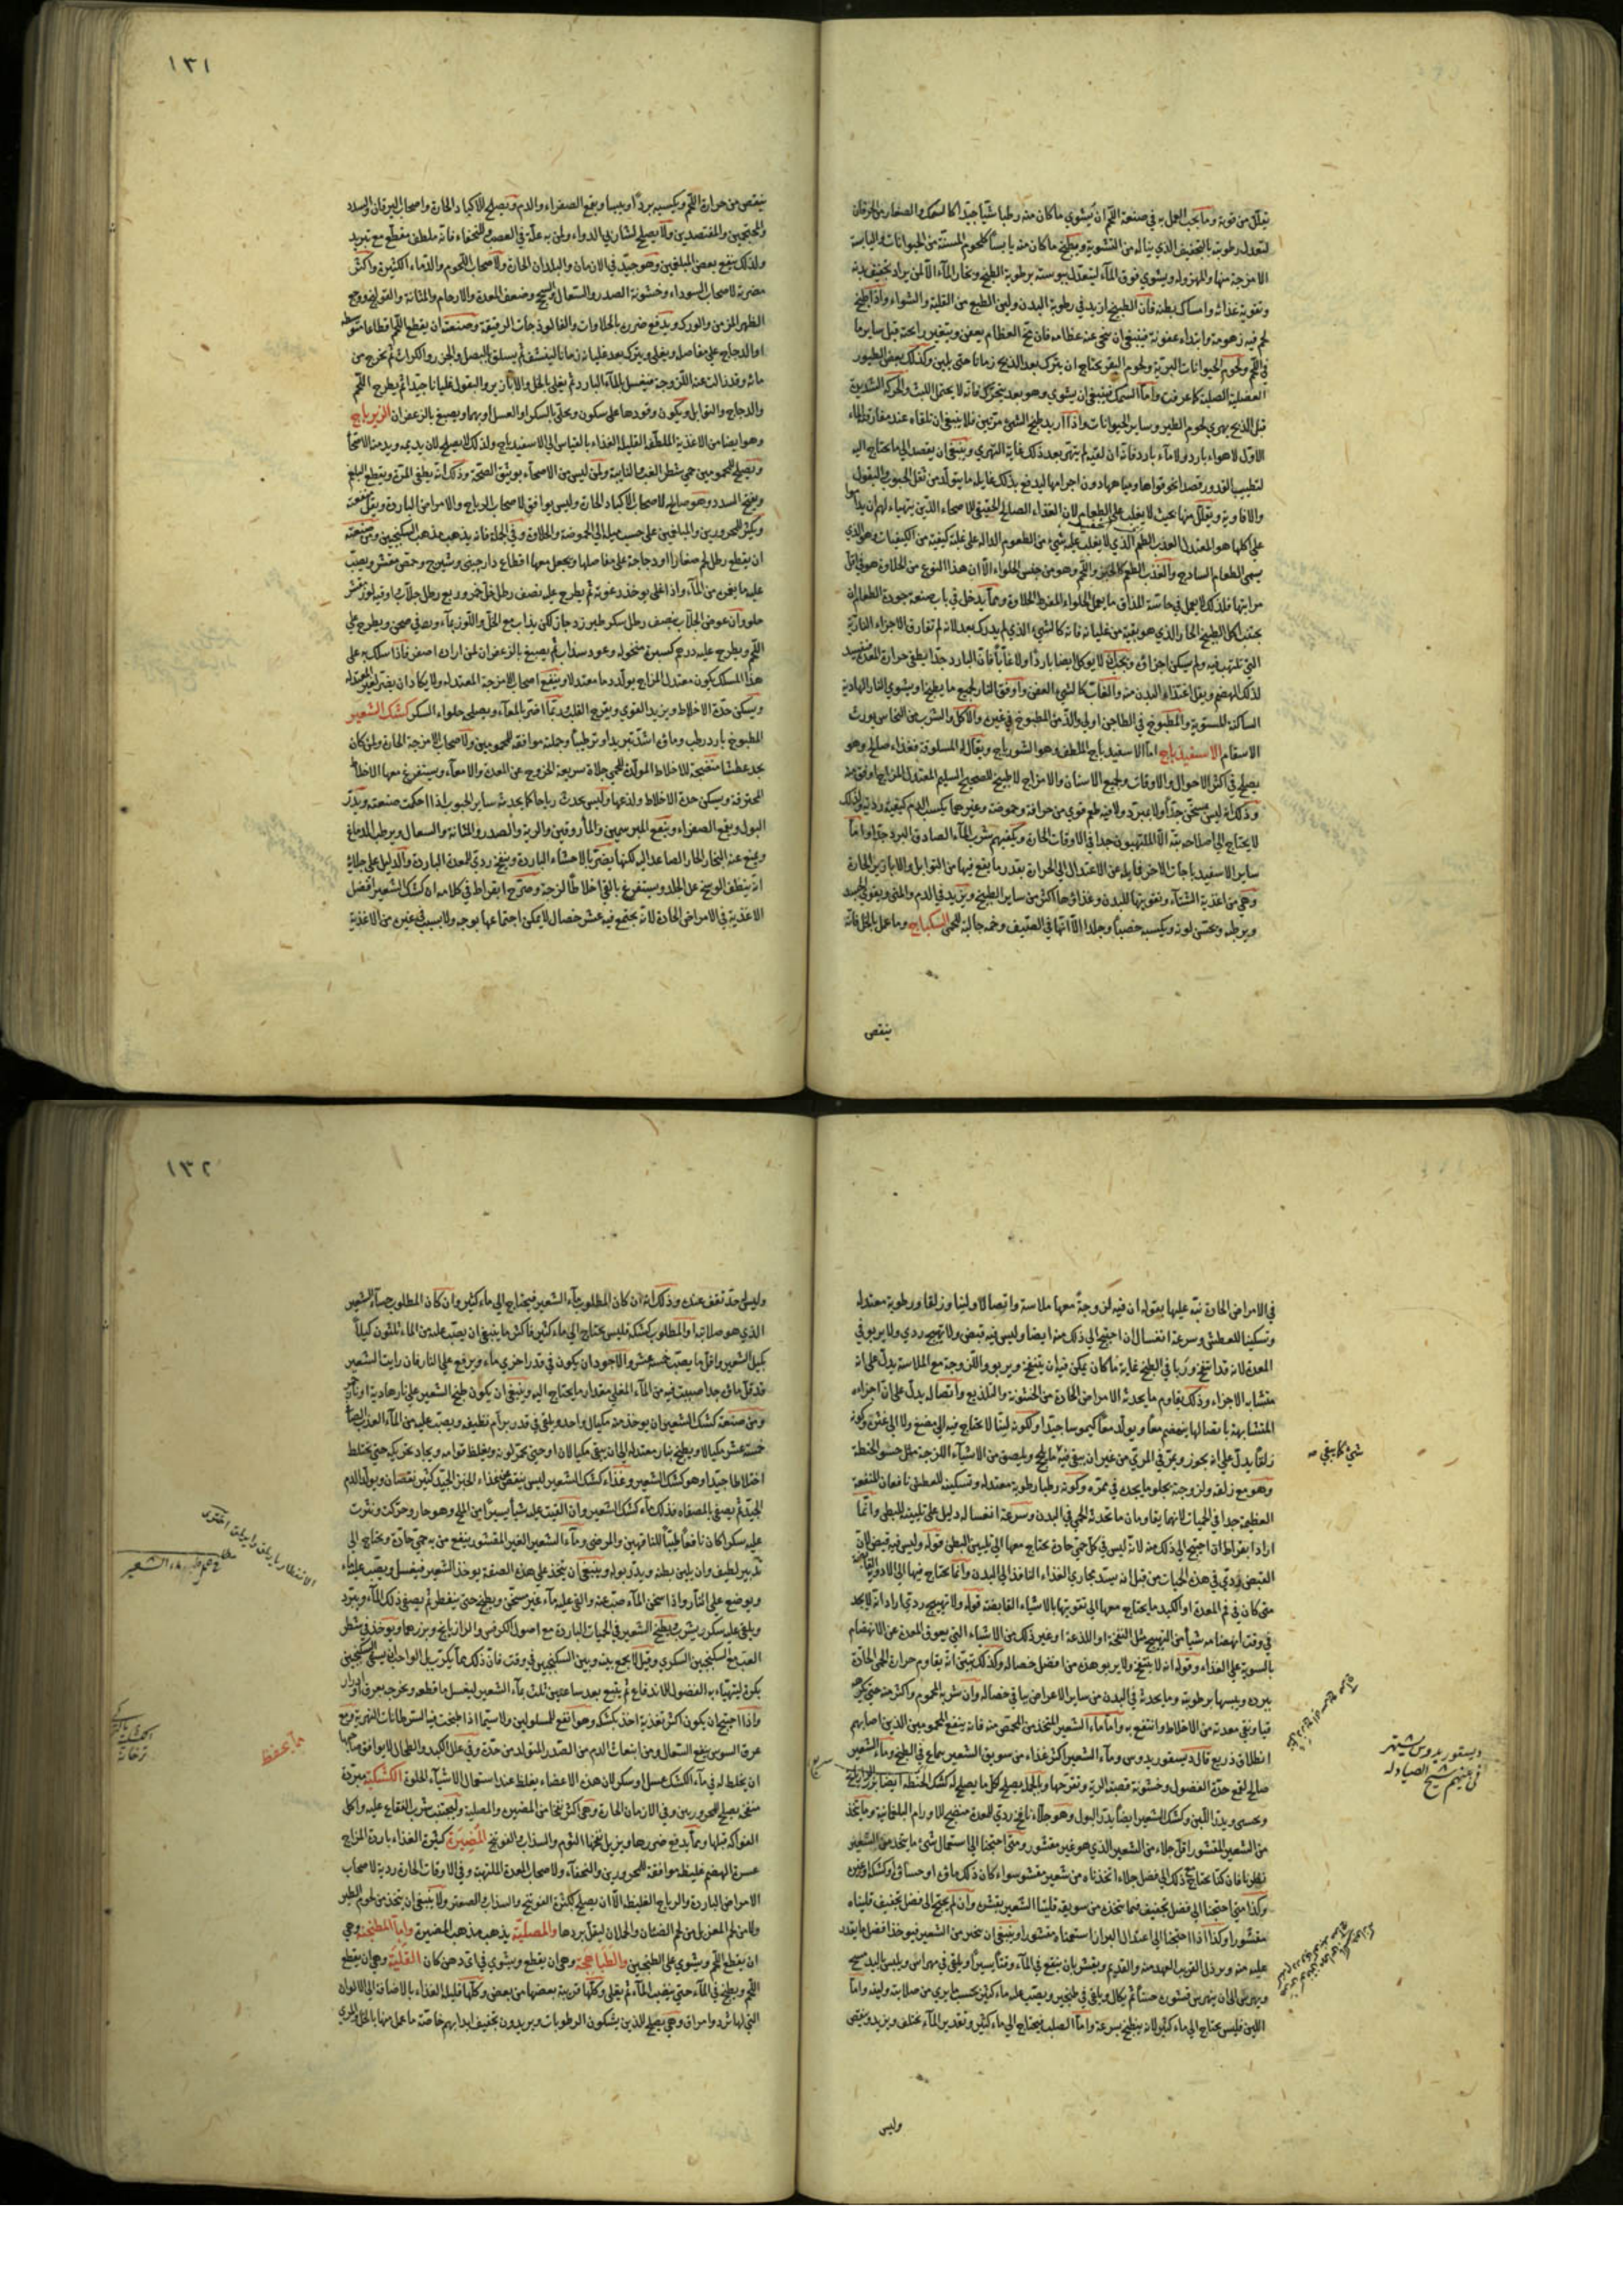 يتعلق من قوته ومما يجب العمل به في صنعة اللحم ان يشوي ما كان منه رطبا شيّا جيّدا كالسمك والصغار من الخرفان
لتعدل رطوبته بالتجفيف الذي يناله من التشوية ويطبخ ما كان منه يابسا كلحوم المسنّة من الحيوانات واليابسة
الامزجة منها والمهزوله ويشوي فوق المآء ليتعدّل يبوسته برطوبة الطبخ وبخار المآء الّا لمن يراد تجفيف بدنه
وتقوية غذائه وامساك بطنه فان الطبيخ ازيد في رطوبة البدن ولين الطبع من القلية والشواء واذا طبخ
لحم فيه زهومة وابتداء عفونة فينبغي ان ينحي عنه عظامه فان مخ العظام يعفن ويتغير رائحته قبل ساير ما
في اللحم ولحوم الحيوانات البرية ولحوم البقر يحتاج ان يترك بعد الذبح زمانا حتى يلين وكذلك بعض الطيور
العضلية الصلبة كما عرفت واما السمك فينبغي ان يشوي وهو بعد يتحرّك فانه لا يحتمل اللبث والحركة الشديدة
قبل الذبح يهري لحوم الطير وساير الحيوانات واذا اريد طبخ الشئ مرّتين فلا ينبغي ان تلقاه عند مفارقة الماء
الاول لا هواء بارد ولا مآء بارد فانه ان لقيه لم يتهرّ بعد ذلك غاية التهري وينبغي ان يقصد الي ما يحتاج اليه
لتطييب القدور قصدا نحو قواها ومياهها دون اجرامها ليدفع بذلك غايلة ما يتولّد من ثقل الحبوب والبقول
والافاوية ويقلل منها بحيث لا يغلب على الطعام لان الغذاء الصالح الحقيقي للاصحاء الذين يتهياء لهم ان يداوموا
على اكلها هو المعتدل العذب الطعم الذي لا يغلب عليه شئ من الطعوم الدالة على غلبة كيفية من الكيفيات وهو الذي
يسمى الطعام الساذج والعذب الطعم كالخبز واللحم وهو من جنس الحلواء الّا ان هذا النوع من الحلاوة هو في اقل
مراتبها فلذلك لا يعمل في حاسّة المذاق ما يعمل الحلواء المفرط الحلاوة ومما يدخل في باب صنعة جودة الطعام ان
يجتنب اكل الطبيخ الحار الذي هو بقية من غليانه فانه كالشئ الذي لم يدرك بعد لانه لم تفارق الاجزاء النارية
التي تلتهب فيه ولم يسكن اجزاؤه ويجب ان لا يوكل ايضا باردا ولا غابّا فان البارد جدّا يطفي حرارة المعدة فيفسد
لذلك الهضم ويقل اغتذاء البدن منه والغابّ كالشئ العفن واوفق النار لجميع ما يطبخ او يشوي النار الهادية
الساكنة للمستوية والمطبوخ في الطاجن اولى والذّ من المطبوخ في غيره والاكل والشرب من النحاس يورث
الاسقام الاسفيدباج اما الاسفيدباج الملطف وهو الشورباج ويقال له المسلوقة فغذاء صالح وهو
يصلح في اكثر الاحوال والاوقات ولجميع الاسنان والامزاج لا طبيخ للصحيح السليم المعتدل المزاج اوفق منه
وذلك انه ليس مسخّن جدّا ولا مبرّد ولا فيه طعم قوي من حرافة وحموضة وغيرهما يكسب الدم كيفية رديّة ولذلك
لا يحتاج الى اصلاحه بتّة الّا للملتهبون جدا في الاوقات الحارة ويكفيهم شرب المآء الصادق البرد جدّا واما
ساير الاسفيدباجات الاخر فمايلة عن الاعتدال الى الحرارة بقدر ما يقع فيها من التوابل والابازير الحارة
وهي من اغذية الشتآء وتقويتها للبدن وغذاؤها اكثر من ساير الطبيخ ويزيد في الدم والمني ويقوي الجسد
ويرطبه ويحسّن لونه ويكسبه خصبا وجلدا الّا انها في الصّيف وخمه جالبة للحمى السكباج وما عمل بالخل فانه
ينقص
١٣١
ينقص من حرارة اللحم ويكسبه بردا ويبسا ويقمع الصفراء والدم ويصلح للاكباد الحارة واصحاب اليرقان والسدد
ولذلك ينفع بعض المبلغمين وهو جيّد في الازمان والبلدان الحارة ولاصحاب اللحوم والدماء الكثيرة واكثر
مضرته لاصحاب السوداء وخشونة الصدر والسعال والسحج وضعف المعدة والارحام والمثانة والقولنج ووجع
الظهر المزمن والورك ويدفع ضرره بالحلاوات والفالوذجات الرقيقة وصنعته ان يقطع اللحم اقطاعا متوسطة
او الدجاج على مفاصله ويغلي ويترك بعد غليانه زمانا لينشف ثم يسلق البصل والجزر والكراث ثم يخرج من
مائه وقد زالت عنه اللزوجة فيغسل بالمآء البارد ثم يغلي بالخل والابازير والبقول غليانا جيّدا ثم يطرح اللحم
والدجاج والتوابل ويكون وقودها على سكون ويحلّى بالسكر او العسل او بهما ويصبغ بالزعفران الزيرباج
وهو ايضا من الاغذية الملطفة القليلة الغذاء بالقياس الى الاسفيدباج ولذلك لا يصلح لان يديمه ويدمنه الاصحآ
ويصلح للمحمومين حمى شطر الغب والنايبة ولمن ليس من الاصحآء بوثيق الصحّة وذلك انه يطفي المرّة ويقطع البلغم
ويفتح السدد وهو صالح لاصحاب الاكباد الحارة وليس بوافق لاصحاب الرياح والامراض الباردة ويقل منفعته
ويكثر للمحرورين والمبلغمين على حسب ميله الى الحموضة والحلاوة وفي الجملة فانه يذهب مذهب السكنجبين ومن صنعته
ان يقطع رطل لحم صغارا او دجاجة على مفاصلها ويجعل معها اقطاع دارچيني وشبوج وحمص مقشر ويصبّ
عليه ما يغمره من المآء واذا اغلي يوخذ رغوته ثم يطرح عليه نصف رطل خل خمر وربع رطل جلّاب اوقية لوز مقشر
حلو وان عوض الجلّاب بنصف رطل سكر طبرزد جاز لكن يذاب مع الخل واللوز بمآء ويصفي ويطرح على
اللحم ويطرح عليه درهم كسبرة منخولة وعود سذاب ثم يصبغ بالزعفران لمن اراده اصفر فاذا سلك به على
هذا المسلك يكون معتدل المزاج يولّد دما معتدلا وينفع اصحاب الامزجة المعتدلة ولا يكاد ان يضر لغير المعتدلة
ويسكن حدّة الاخلاط ويزيد القوي ويفرح القلب وربّما اضر المعآء ويصلحه حلواء السكر كشك الشعير
المطبوخ بارد رطب وماؤه اشدّ تبريدا وترطيبا وجملته موافقة للمحمومين ولاصحاب الامزجة الحارة ولمن كان
يجد عطشا منضجة للاخلاط المولّدة للحمي جلاة سريعة الخروج عن المعدة والامعآء ويستفرغ معها الاخلاط
المحترقة ويسكن حدة الاخلاط ولذعها وليس يحدث رياحا كما يحدث ساير الحبوب اذا احكمت صنعته ويدرّ
البول ويقمع الصفراء وينفع المبرسمين والمأروقين والرية والصدر والمثانة والسعال ويرطب الدماغ
ويمنع عنه البخار الحار الصاعد اليه لكنها يضر بالاحشاء الباردة وينفخ ردي للمعدة الباردة والدليل على جلائه
انه ينظف الوسخ على الجلد ويستفرغ بالقئ اخلاطا لزجة وصرّح ابقراط في كلامه ان كشك الشعير افضل
الاغذية في الامراض الحادة لانه يجتمع فيه عشر خصال لا يمكن اجتماعها بوجه ولا سبب في غيره من الاغذية
في الامراض الحادة نبّه عليها بقوله ان فيه لزوجة معها ملاسة واتصالا ولينا وزلقا ورطوبة معتدلة
وتسكينا للعطش وسرعة انغسال ان احتيج الى ذلك منه ايضا وليس فيه قبض ولا تهييج ردي ولا يربو في
المعدة لانه قد انتفخ وربا في الطبخ غاية ما كان يمكن فيه ان ينتفخ ويربو واللزوجة مع الملاسة يدلّ على انه
متشابه الاجزاء وذلك يقاوم ما يحدثه الامراض الحادة من الخشونة والتلذيع واتصاله يدل على ان اجزاءه
المتشابهة باتصالها ينهضم معا ويولّد معا كيموسا جيّدا ولكونه لينا لا يحتاج فيه الى مضغ ولا الى غيره وكونه
زلقا يدلّ على انه يجوز ويمرّ في المري من غير ان يبقي فيه ما يلحج ويلصق من الاشياء اللزجة مثل حسو الحنطة
وهو مع زلقه ولزوجته يجلو ما يجده في ممرّه وكونه رطبا رطوبة معتدلة وتسكينه للعطش نافعان للمنفعة
العظيمة جدا في الحميات لانهما يقاومان ما تحدثه الحمى في البدن وسرعة انغساله دليل على تليينه للبطن وانما
اراد ابقراط ان احتيج الى ذلك منه لانه ليس في كل حمى حادة يحتاج معها الى تليين البطن قوله وليس فيه قبض لان
القبض ردّي في هذه الحميات من قبل انه يسدّ مجاري الغذاء النافذ الى البدن وانما يحتاج فيها الى الادوية القابضة
متى كان في فم المعدة او الكبد ما يحتاج معها الى تقويتها بالاشياء القابضة قوله ولا تهييج ردي اراد انه لا يجد
في وقت انهضامه شيأ من التهييج مثل النفخة او اللذعة او غير ذلك من الاشياء التي يعوق المعدة عن الانهضام
بالسوية على الغذاء وقوله انه لا ينتفخ ولا يربو هذه من افضل خصاله وكذلك تبيّن انه يقاوم حرارة الحمى الحادّة
ببرده ويبسها برطوبته وما يحدث في البدن من ساير الاعراض بباقي خصاله وان شربه المحموم واكثر منه حتى تحرّكه
قيأ ونقي معدته من الاخلاط وانتفع به واما ماء الشعير المتخذ من المحمّص منه فانه ينفع المحمومين الذين اصابهم
انطلاق ذريع قال ديسقوريدوس ومآء الشعير اكثر غذاء من سويق الشعير بماع في الطبخ وماء الشعير
صالح لقمع حدّة الفضول وخشونة قصبة الرية وتقرّحها وبالجملة يصلح كل ما يصلح له كشك الحنطة ايضا بزر الرازيانج
ويحسى ويدرّ اللبن وكشك الشعير ايضا يدرّ البول وهو جلّاء نافخ ردي للمعدة منضج للاورام البلغمانية وما يتخذ
من الشعير المقشور اقل جلاء من الشعير الذي هو غير مقشور ومتى احتجنا الى استعمال شئ ما يتخذ من الشعير
نظرنا فان كنا نحتاج مع ذلك الى فضل جلاء اتخذناه من شعير مقشر سواء كان ذلك ماؤه او حساؤه او كشكه او غيره
وكذا متى احتجنا الى فضل تجفيف فيما نتخذ من سويقه قلينا الشعير بقشره وان لم يحتج الى فضل تجفيف قليناه
مقشورا وكذا اذا احتجنا الى اعتدال البراز استعملناه مقشورا وينبغي ان نتخير من الشعير فيوخذ افضل ما يقدر
عليه منه ويرذل القريب العهد منه والقديم ويقشر بان ينقع في المآء وقتا يسيرا ويلقي في مهراس ويلبس باليد مسح
ويهرس الى ان يتهري قشوره حسنا ثم يكال ويلقي في طنجير ويصب عليه مآء كثير بحسب ما يري من صلابته ولينه واما
اللين فليس يحتاج الى ماء كثير لانه ينطبخ بسرعة واما الصلب فيحتاج الى ماء كثير وتقدير المآء يختلف ويزيد وينقص
شئ مما يبقي صه
ديسقوريدوس يشتهر
فيما بينهم شيخ الصيادله
وليس
١٣٢
وليس له حدّ تقف عنده وذلك انه ان كان المطلوب مآء الشعير فيحتاج الى ماء كثير وان كان المطلوب حسآء الشعير
الذي هو صلابة او المطلوب كشكه فليس يحتاج الى ماء كثير فاكثر ما ينبغي ان يصبّ عليه من الماء ثلثون كيلا
بكيل الشعير واقل ما يصبّ خمسة عشر والاجود ان يكون في قدر اخري ماء ويرفع على النار فان رايت الشعير
قد قلّ ماؤه جدا صببت فيه من المآء المغلي مقدار ما يحتاج اليه وينبغي ان يكون طبخ الشعير على نار هادية او نار جمر
ومن صنعة كشك الشعير ان يوخذ منه مكيال واحد ويلقي في قدر برام نظيف ويصبّ عليه من المآء العذب الصافي
خمسة عشر مكيالا ويطبخ بنار معتدلة الى ان يبقي مكيالان او حتى يحمرّ لونه ويغلظ قوامه ويجاد تحريكه حتى يختلط
اختلاطا جيّدا وهو كشك الشعير وغذاء كشك الشعير ليس ينقص عن غذاء الخبز الجيّد كثير نقصان ويولّد الدم
الجيّد ثم يصفي بالمصفاة فذلك مآء كشك الشعير وان القيت عليه شيأ يسيرا من الملح وهو حار وحرّكت ونثرت
عليه سكرا كان نافعا طيّبا للناقهين والمرضى ومآء الشعير الغير المقشور ينفع من به حمي حادّة ويحتاج الى
تدبير لطيف وان يلين بطنه ويدرّ بوله وينبغي ان يتخذ على هذه الصفة يوخذ الشعير فيغسل ويصبّ عليه مآء
ويوضع على النار واذا سخن المآء صبّ عنه والقي عليه مآء غير مسخّن ويطبخ حتى يتفطر ثم يصفي ذلك المآء ويبرّد
ويلقي عليه سكر ويشرب ويطبخ الشعير في الحميات الباردة مع اصول الكرفس والرازيانج وبزرهما ويوخذ في شطر
الغب مع السكنجبين السكري وقيل لا يجمع بينه وبين السكنجبين في وقت فان ذلك مما يكرّب بل الواجب ان يسقي السكنجبين
بكرة ليتهيّاء به الفضول للاندفاع ثم يتبع بعد ساعتين ثلث بمآء الشعير ليغسل ما قطعه ويخرجه بعرق او ادرار
واذا احتيج ان يكون اكثر تغذية اخذ بكشكه وهو انفع للمسلولين ولاسيما اذا طبخت فيه السرطانات النهرية ومع
عرق السوس ينفع السعال ومن انبعاث الدم من الصدر المتولد من حدّة وفي علل الكبد والطحال لا يوافق صاحبها
ان يخلط له في مآء الكشك عسل او سكر لان هذه الاعضاء يغلظ عند استعمال الاشيآء الحلوة الكشكية مبردّة
منفخة يصلح للمحرورين وفي الازمان الحارة وهي اكثر نفخا من المضيرة والمصلية وليجتنب شرب الفقاع عليه واكل
الفواكه قبلها ومما يدفع ضررها ويزيل نفخها الثوم والسذاب والفوتنج المضيرة كثيرة الغذاء باردة المزاج
عسرة الهضم غليظة موافقة للمحرورين والنحفآء ولاصحاب المعدة الملتهبة وفي الاوقات الحارة ردية لاصحاب
الامراض الباردة والرياح الغليظة الّا ان يصلح بكثرة الفوتنج والسذاب والصعتر ولا ينبغي ان يتخذ من لحوم الطير
ولا من لحم المعز بل من لحم الضئان والحملان ليقل بردها والمصلية يذهب مذهب المضيرة واما المطنجنة وهي
ان يقطع اللحم ويشوي على الطنجير والطباهجة وهي ان يقطع ويشوي في اي دهن كان القلية وهي ان يقطع
اللحم ويطبخ في المآء حتى ينضب المآء ثم يقلي وكلها قريبة بعضها من بعض وكلها قليلة الغذاء بالاضافة الى الالوان
التي لها ثرد وامراق وهي يصلح للذين يشكون الرطوبات ويريدون تجفيف ابدانهم خاصة ما عمل منها بالخل والمري
مما يحفظ